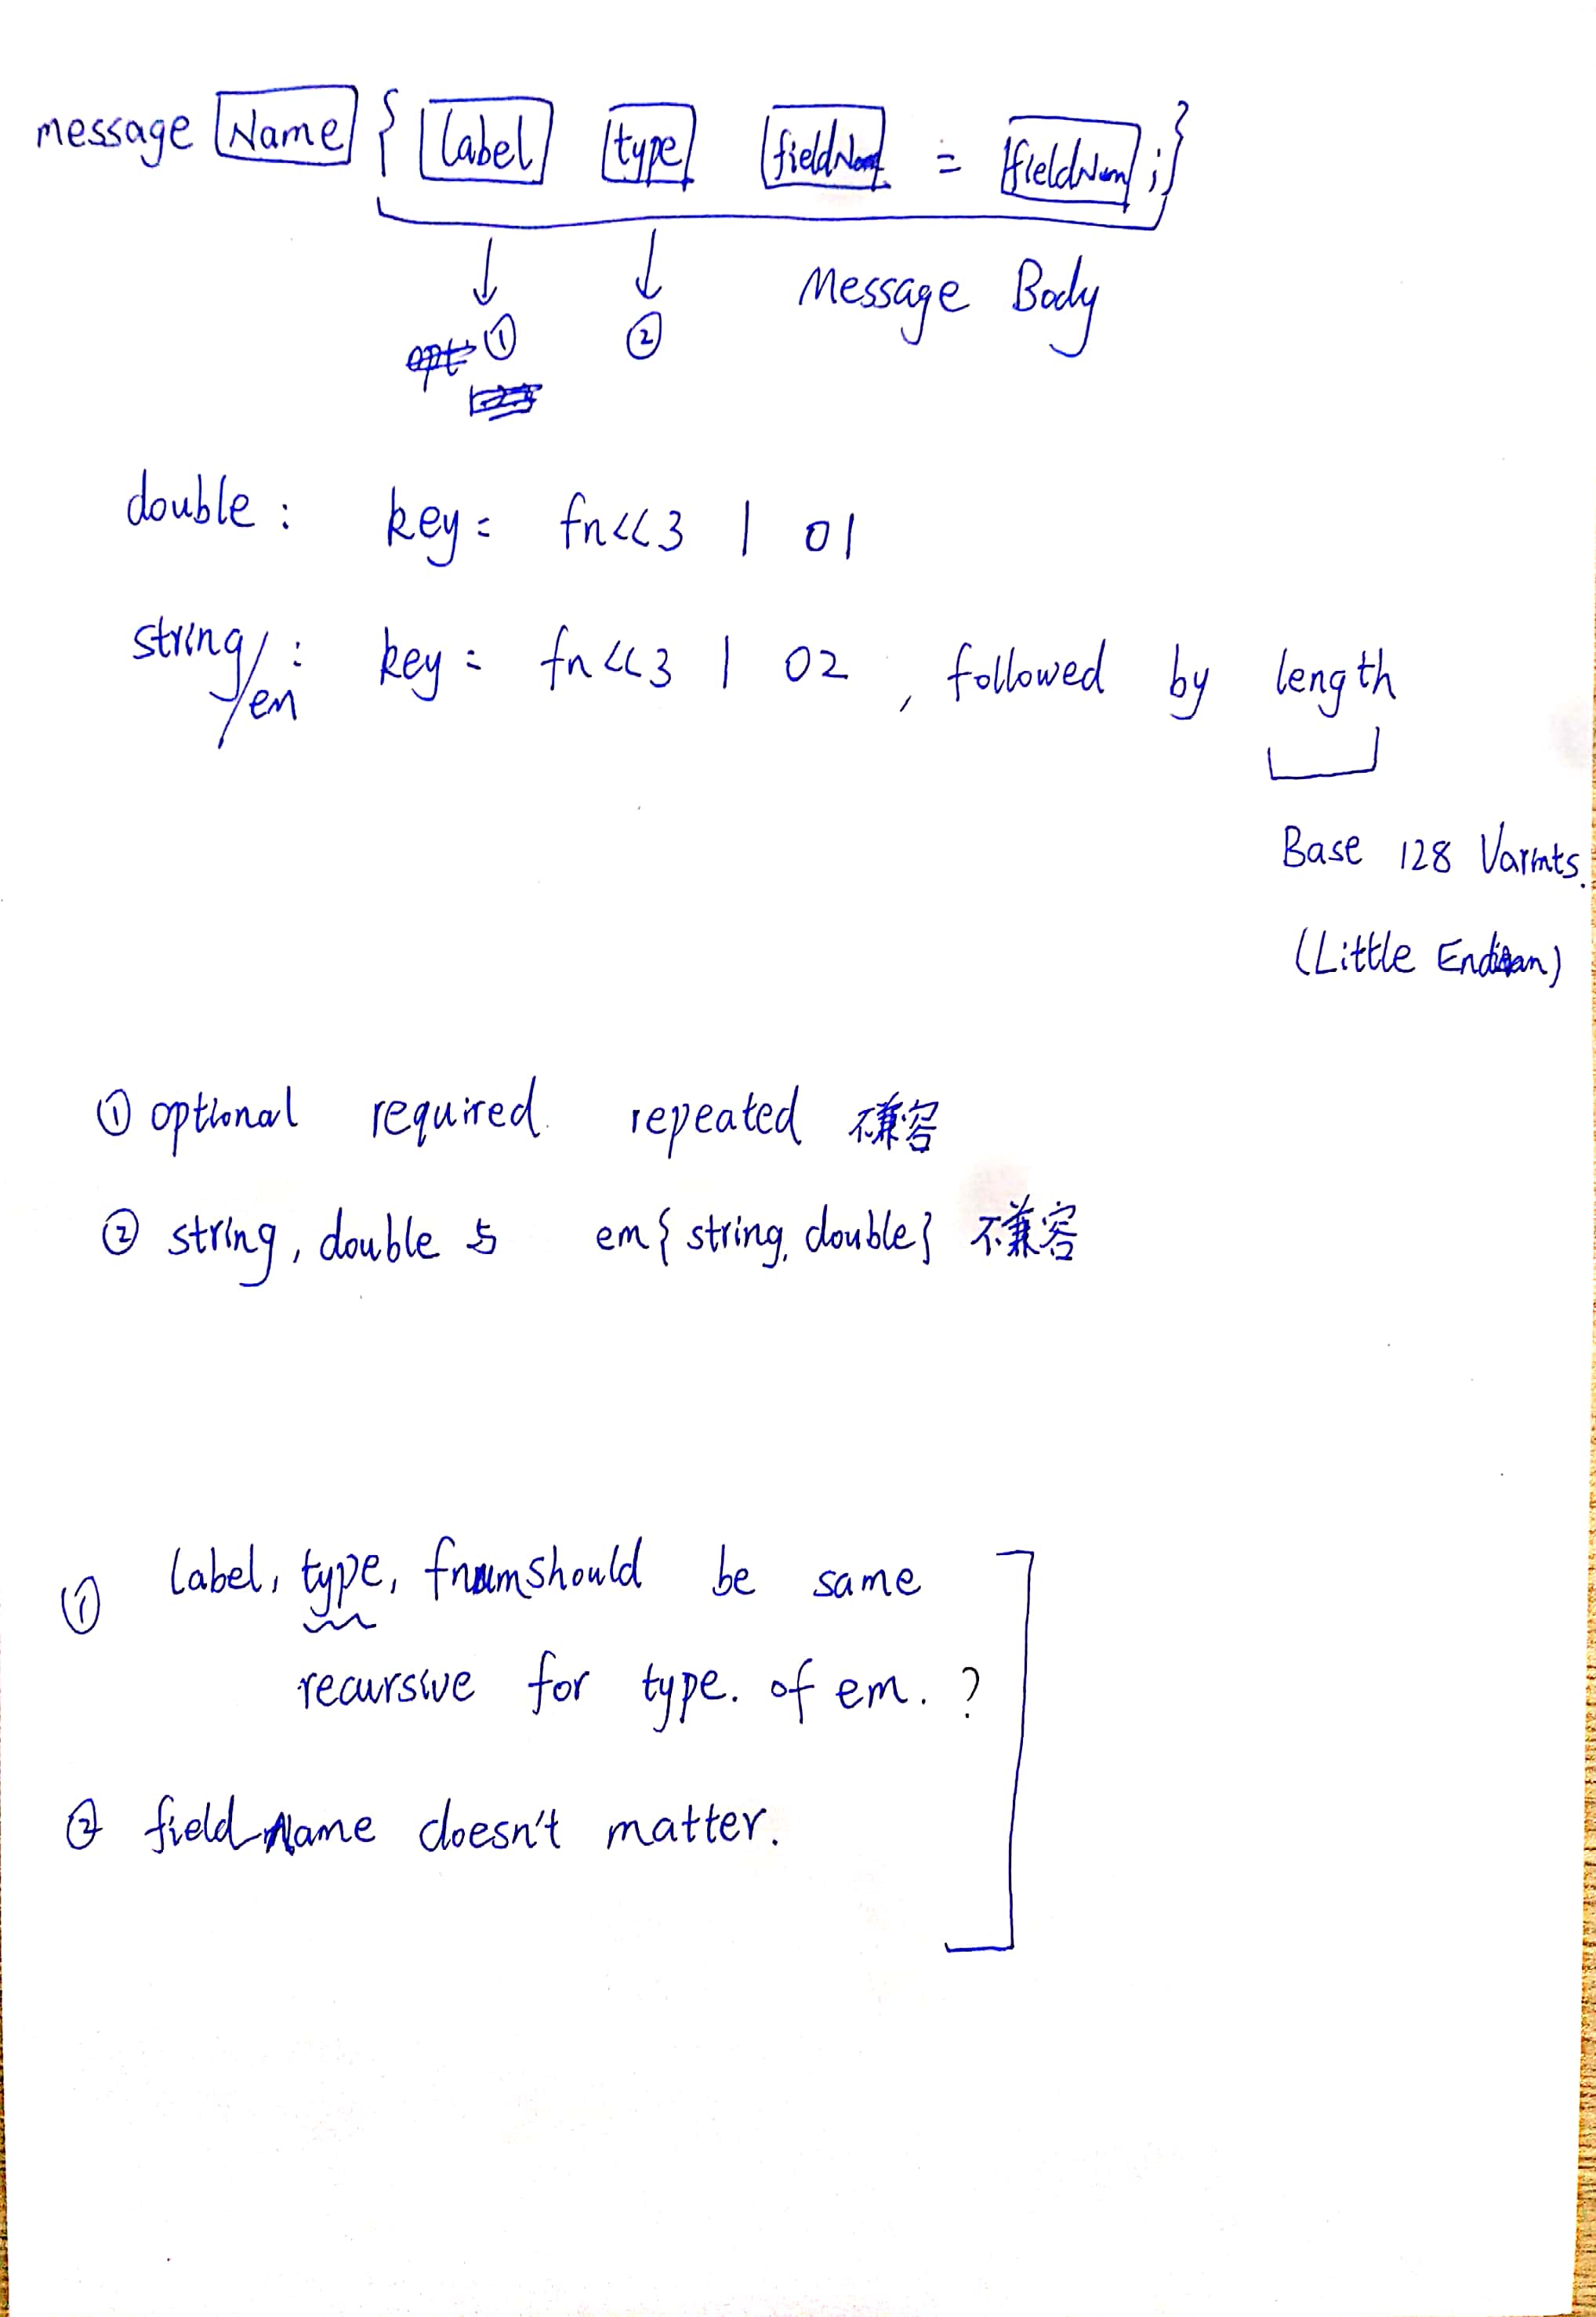 message Name { label type fieldName = fieldNum ; }
① ② Message Body
double : key = fn<<3 | 01
string/em : key = fn<<3 | 02 , followed by length
Base 128 Varints.
(Little Endian)
① optional required. repeated 不兼容
② string, double 与 em{ string, double } 不兼容
① label, type, fnum should be same
recursive for type. of em. ?
② fieldName doesn't matter.